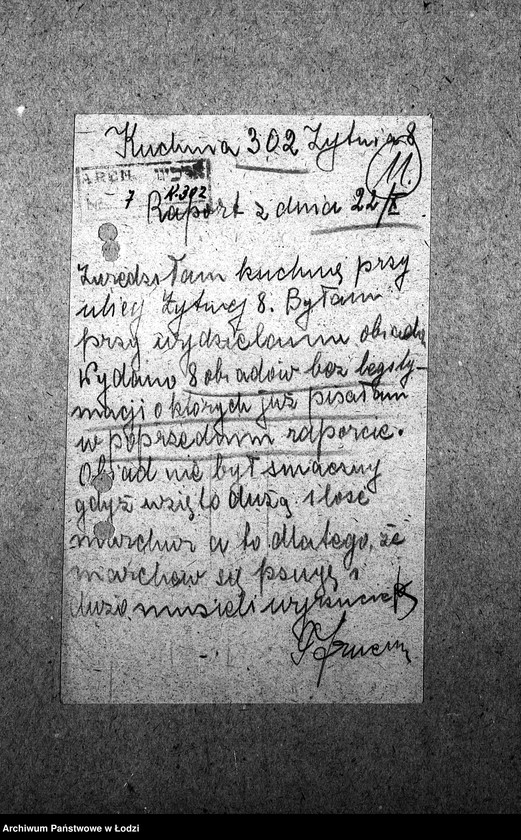 Kuchnia 302 Żytnia 8
11.
ARCH
7 K.302
Raport z dnia 22/X.
Zwiedziłam kuchnię przy
ulicy Żytniej 8. Byłam
przy wydzielaniu obiadu
Wydano 8 obiadów bez legity-
macji o których już pisałam
w poprzednim raporcie.
Obiad nie był smaczny
gdyż wzięto dużą ilość
marchwi a to dlatego, że
marchew się psuje i
dużo musieli wyrzucić
Archiwum Państwowe w Łodzi